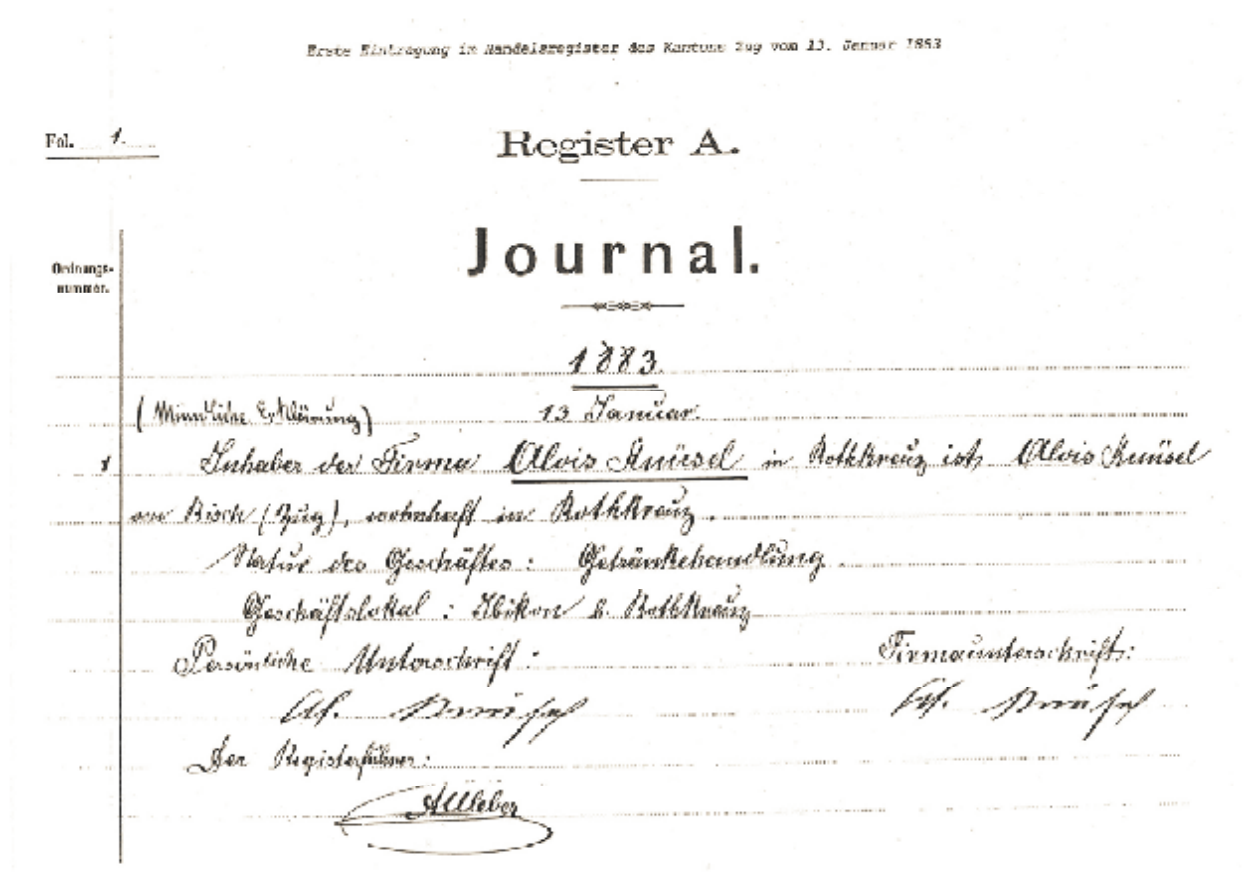 Erste Eintragung im Handelsregister des Kantons Zug vom 13. Januar 1883
Fol. 1.
Register A.
Journal.
Ordnungs-
nummer.
1883.
(Mündliche Erklärung) 13 Januar.
1 Inhaber der Firma Alois Knüsel in Rothkreuz ist Alois Knüsel
von Risch (Zug), wohnhaft in Rothkreuz.
Natur des Geschäftes: Getränkehandlung.
Geschäftslokal: Ibikon b. Rothkreuz
Persönliche Unterschrift: Firmaunterschrift:
Al. Knüsel Al. Knüsel
Der Registerführer: